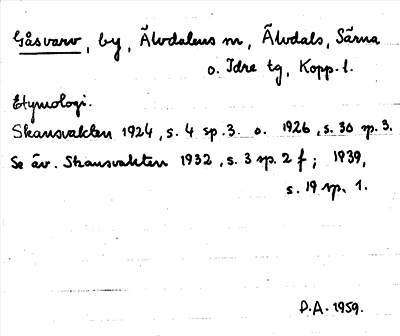 Gåsvarv, by, Älvdalens sn, Älvdals, Särna
o. Idre tg, Kopp. l.
Etymologi.
Skansvakten 1924, s. 4 sp. 3. o. 1926, s. 30 sp. 3.
Se äv. Skansvakten 1932, s. 3 sp. 2 f; 1939,
s. 19 sp. 1.
D.A. 1959.